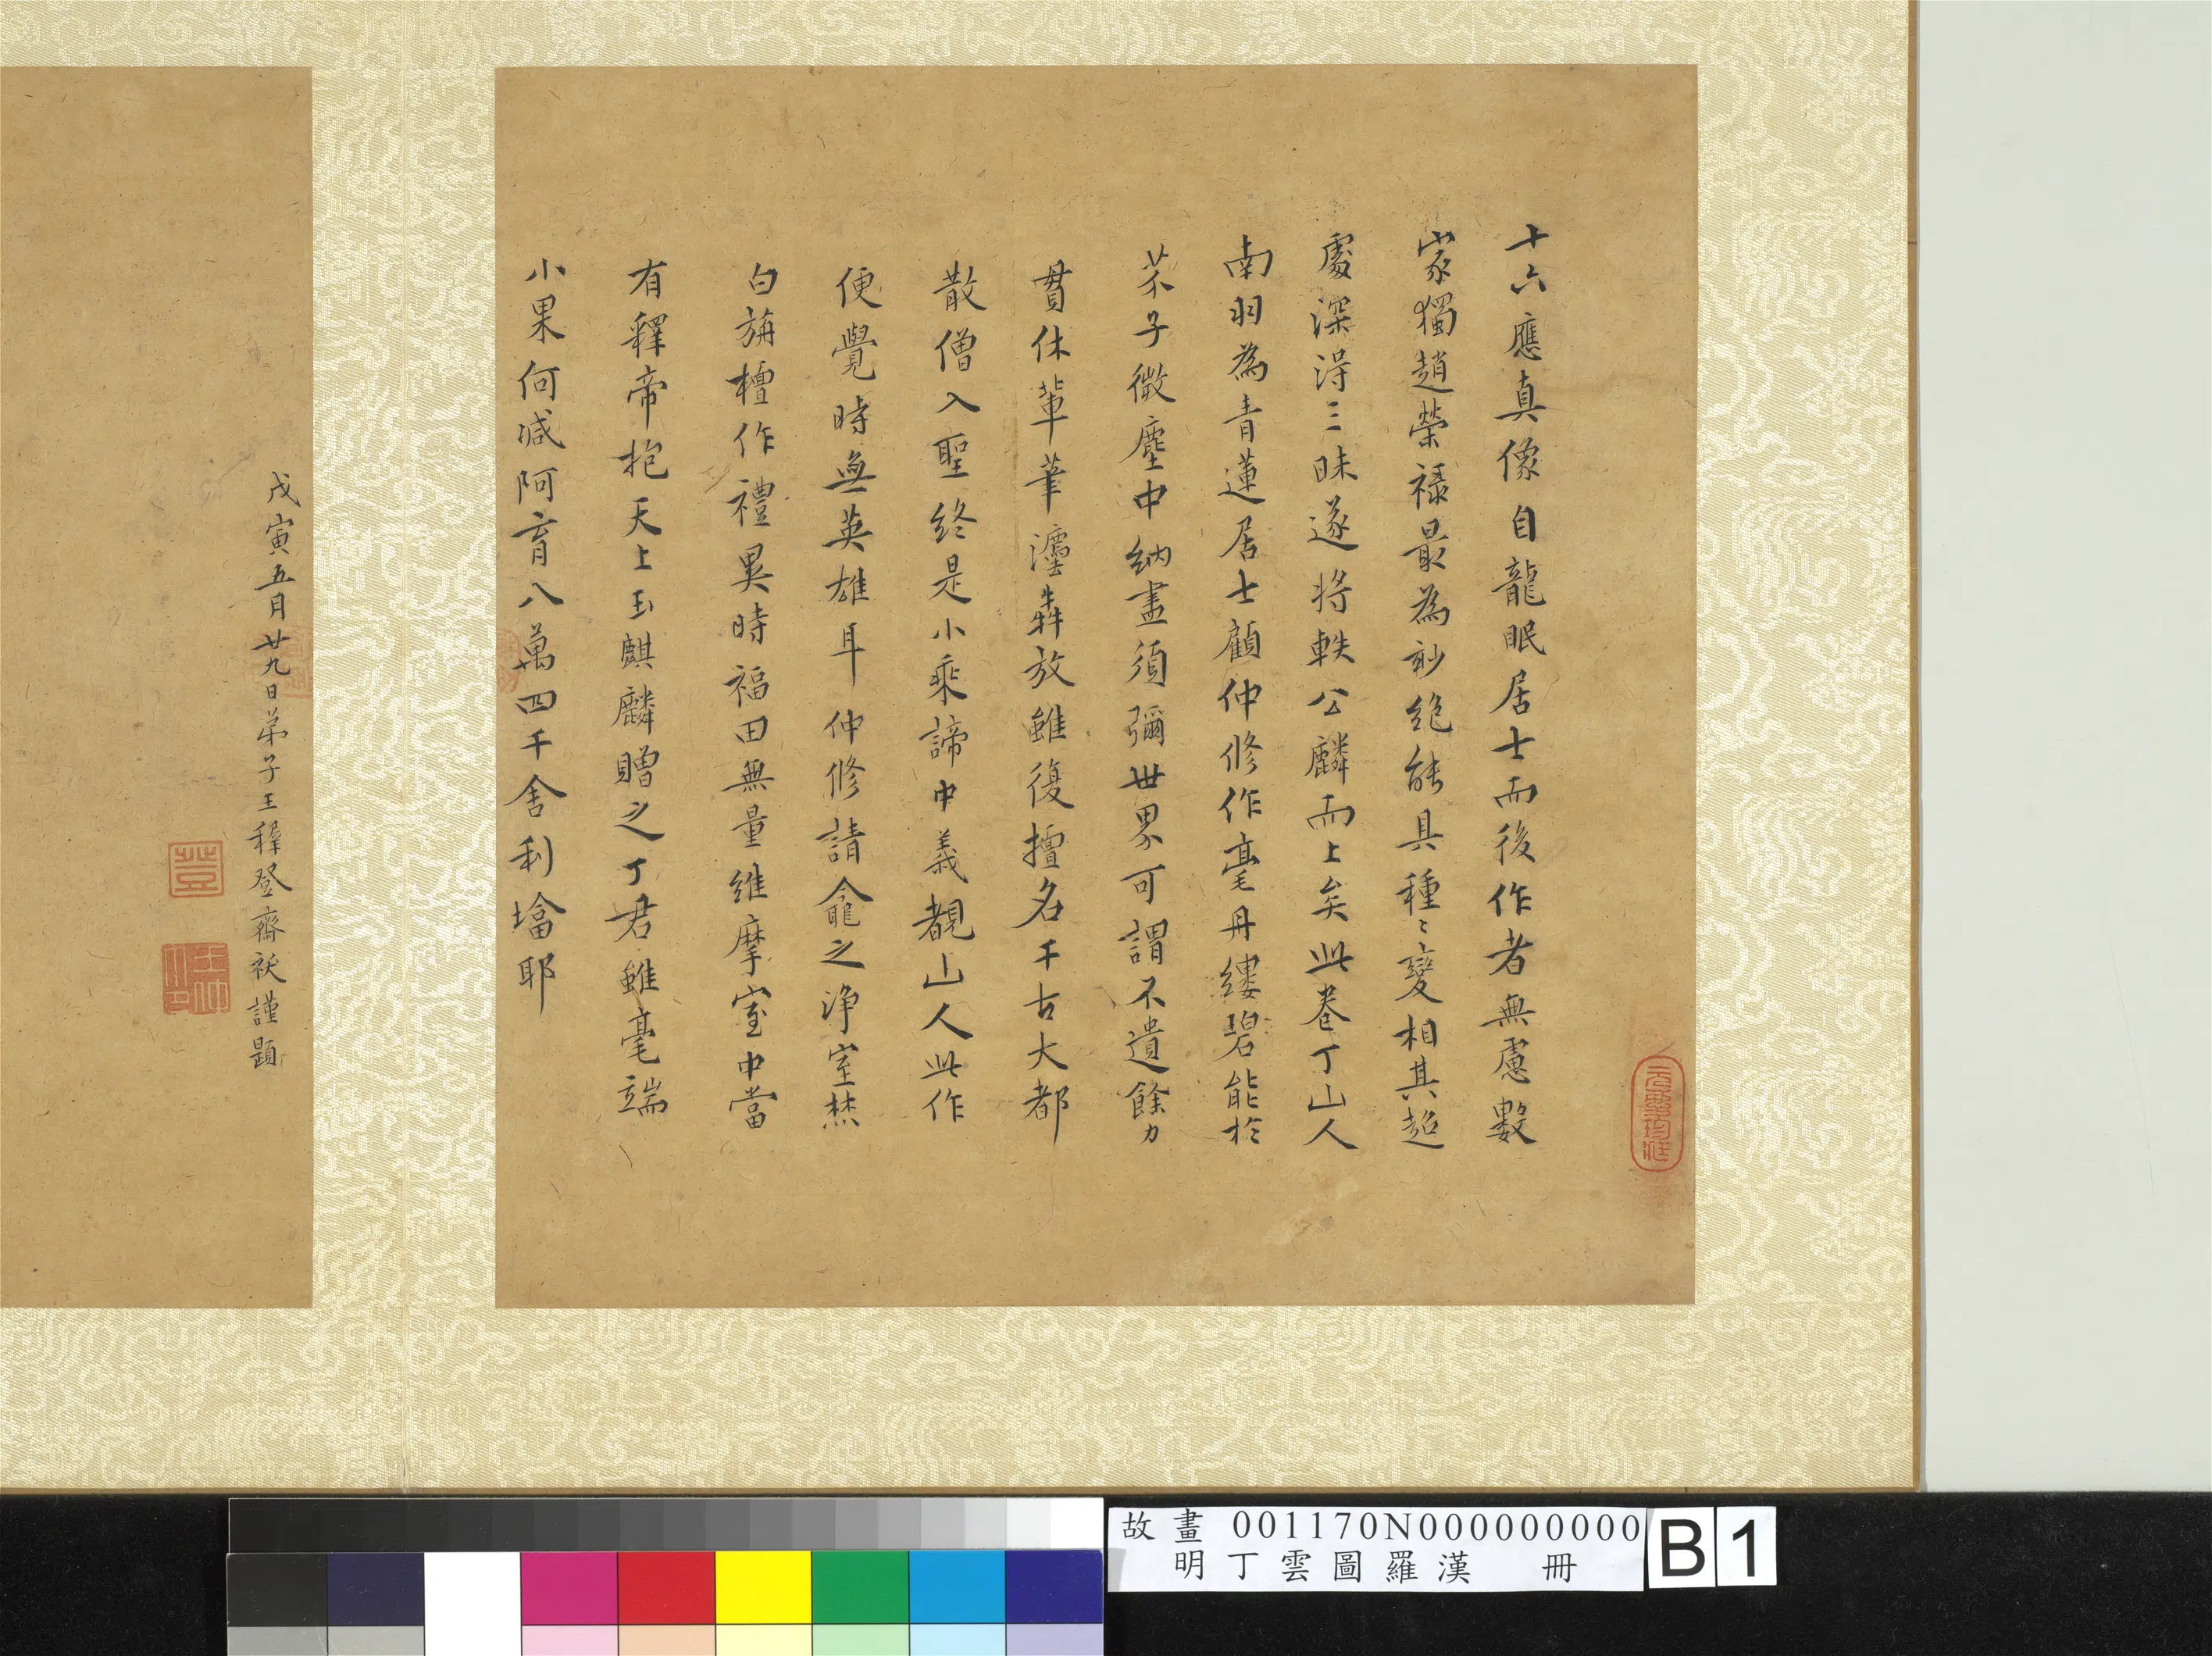 十六應真像自龍眠居士而後作者無慮數
家獨趙榮祿最為妙絕能具種種變相其超
處深得三昧遂將軼公麟而上矣此卷丁山人
南羽為青蓮居士顧仲修作毫丹縷碧能於
芥子微塵中納盡須彌世界可謂不遺餘力
貫休輩筆灋犇放雖復擅名千古大都
散僧入聖終是小乘諦中義覩山人此作
便覺時無英雄耳仲修請龕之淨室焚
白旃檀作禮異時福田無量維摩室中當
有釋帝抱天上玉麒麟贈之丁君雖毫端
小果何減阿育八萬四千舍利墖耶
戊寅五月廿九日弟子王穉登齋祓謹題
登
故畫 001170N000000000 B 1
明丁雲圖羅漢 冊